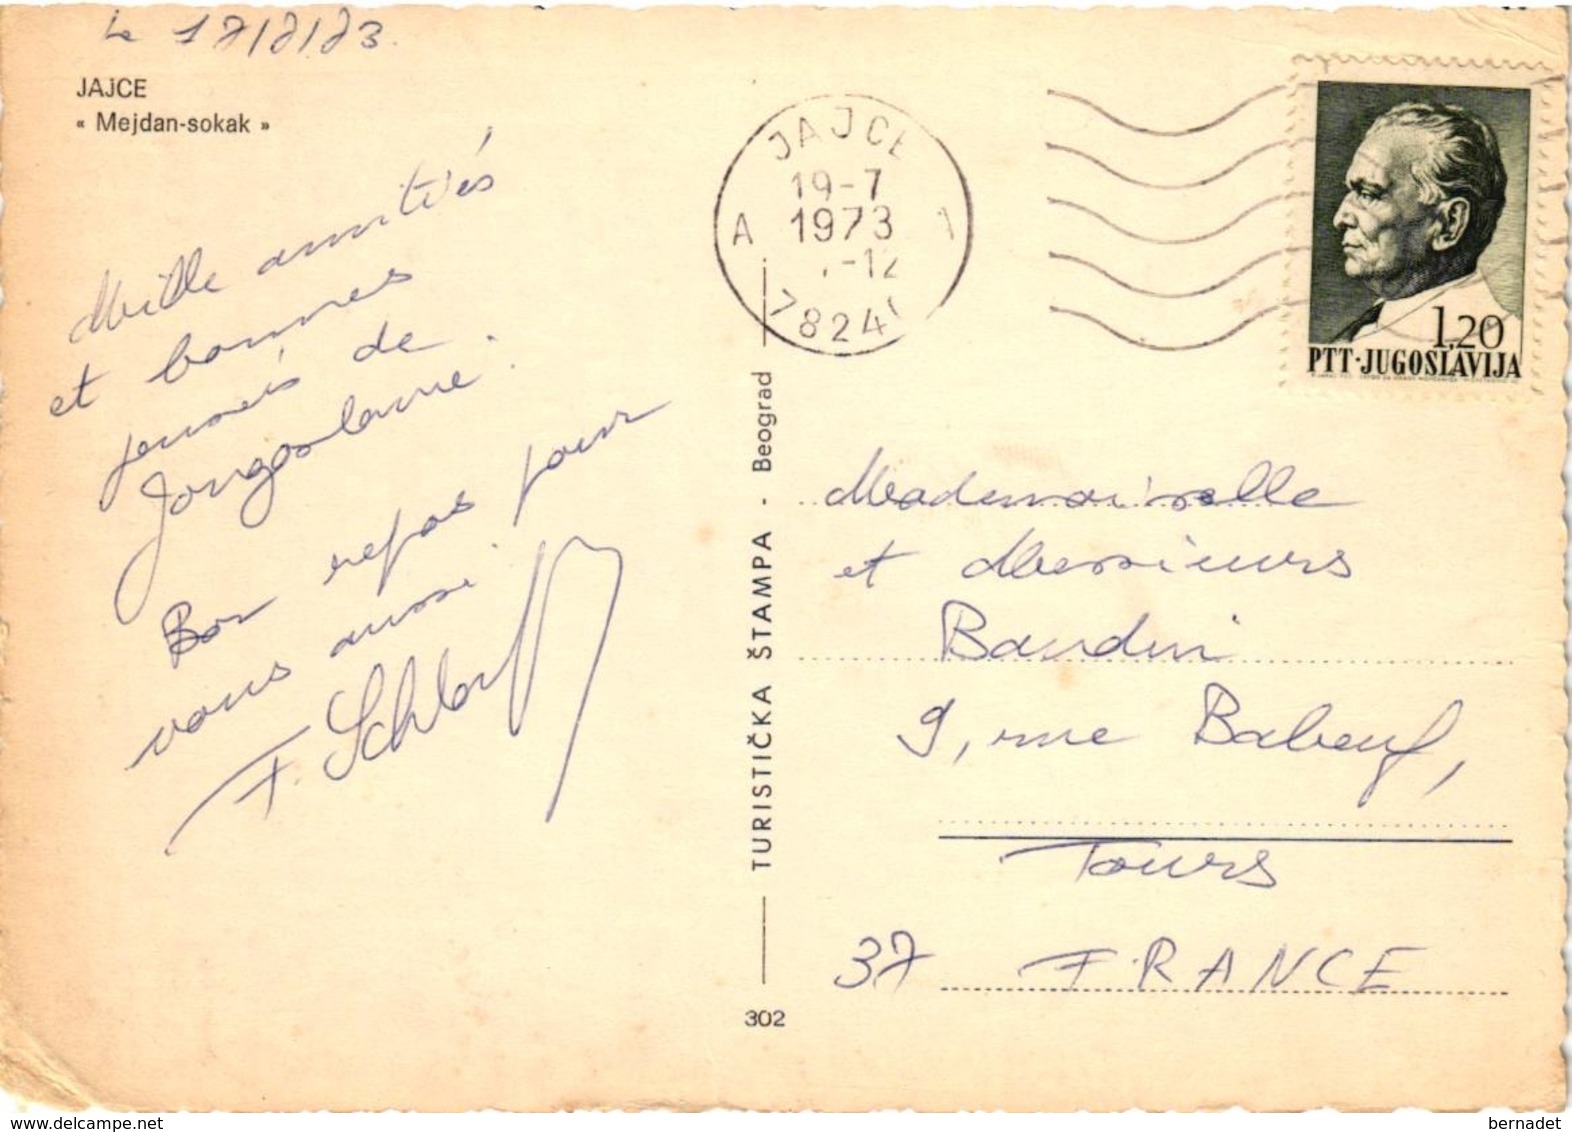 Le 17/7/73.
JAJCE
« Mejdan-sokak »
Mille amitiés
et bonnes
pensées de
Yougoslavie.
Bon repos pour
vous aussi.
JAJCE
19-7
1973
A 1
-12
7824
1,20
PTT·JUGOSLAVIJA
TURISTIČKA ŠTAMPA - Beograd
302
Mademoiselle
et Messieurs
Baudin
9, rue Babeuf,
Tours
37 FRANCE
delcampe.net
bernadet